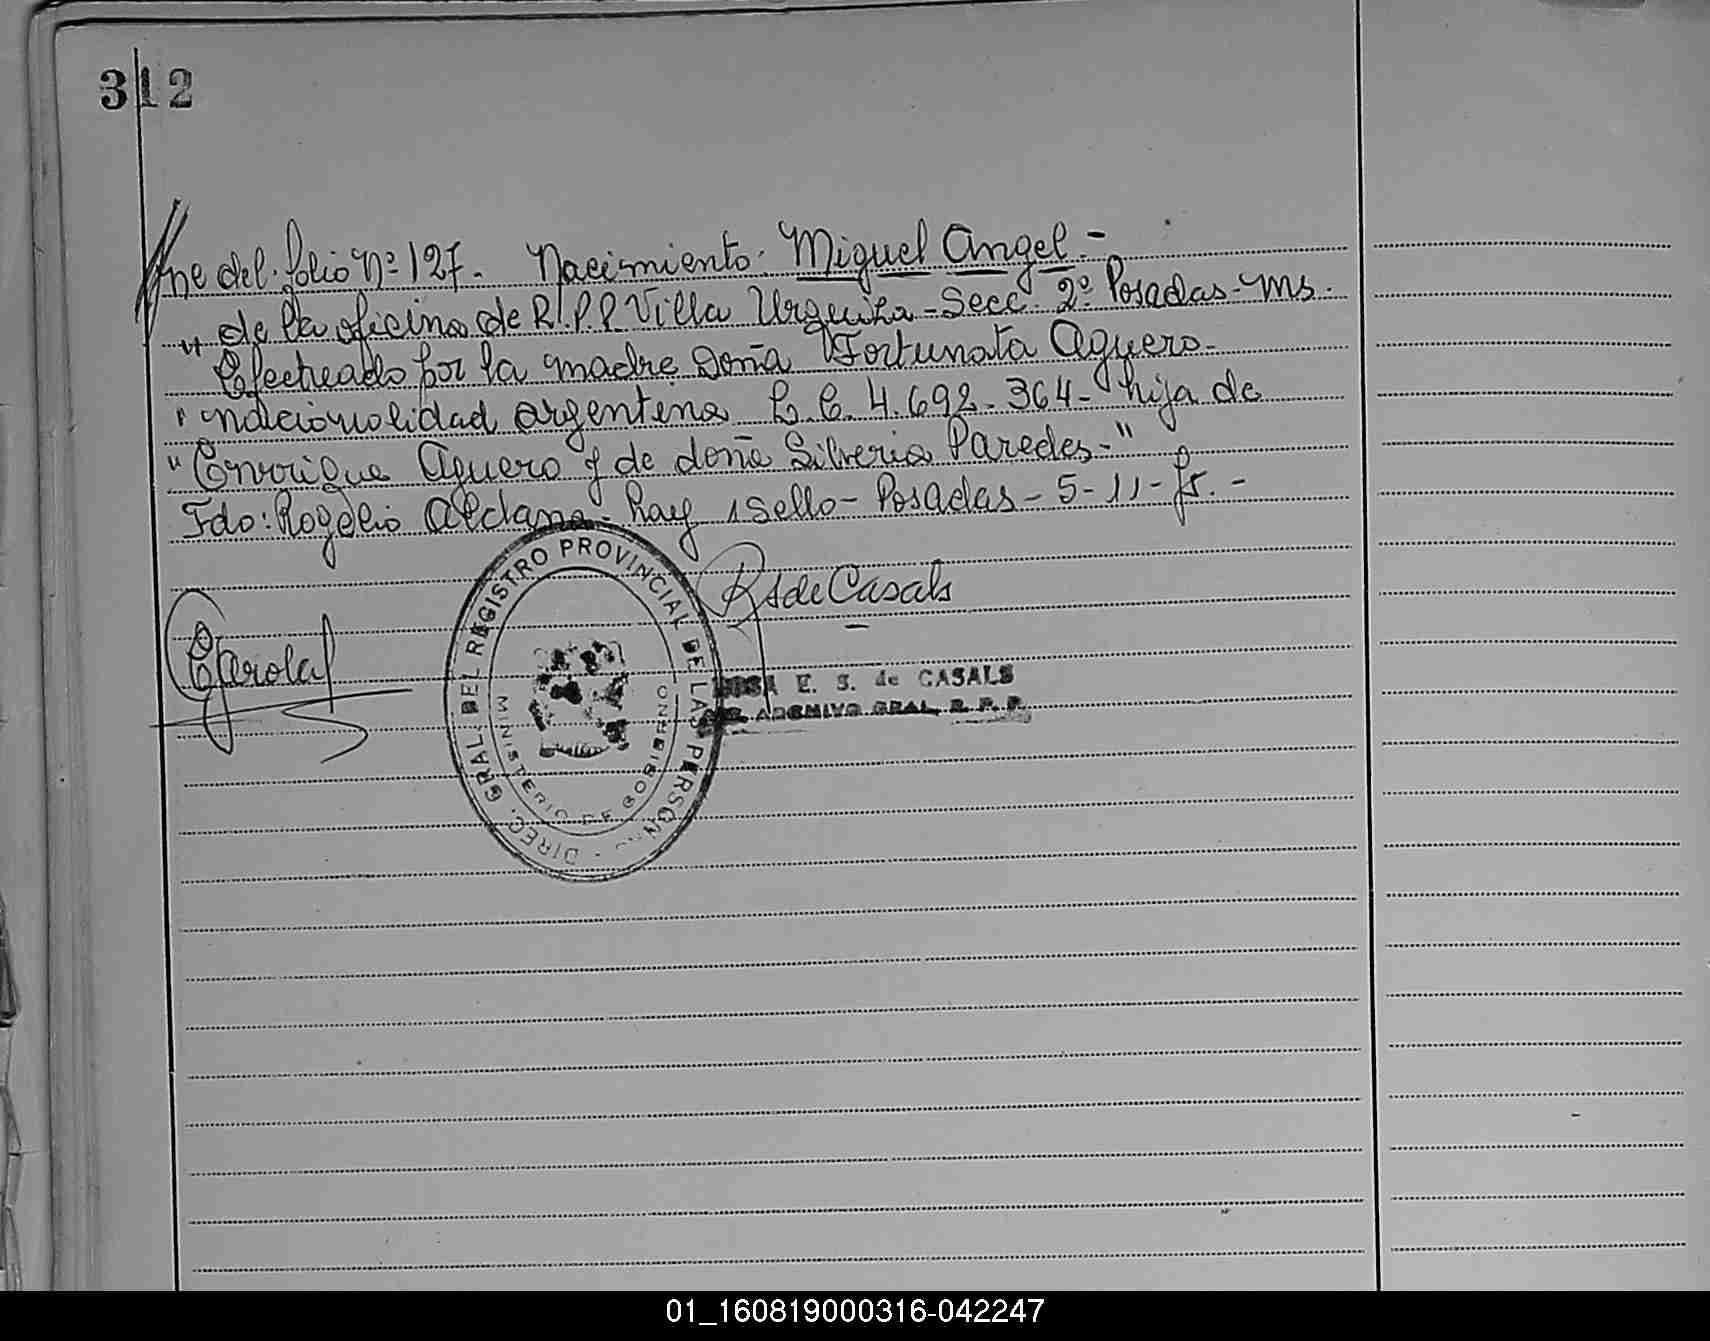 312
ne del folio Nº 127. Nacimiento: Miguel Angel.-
" de la oficina de R.P.P. Villa Urquiza - Secc. 2º Posadas - Ms.
Efectuado por la madre Doña Fortunata Aguero-
" nacionalidad argentina L.C. 4.692.364- hija de
" Enrrique Aguero y de doña Silveria Paredes-"
Fdo: Rogelio Aldana- Hay 1 Sello- Posadas- 5-11-
RSdeCasals
DIREC. GRAL. DEL REGISTRO PROVINCIAL DE LAS PERSON
MINISTERIO DE GOBIERNO
E. S. de CASALS
ARCHIVO GRAL. R. P. P.
01_160819000316-042247